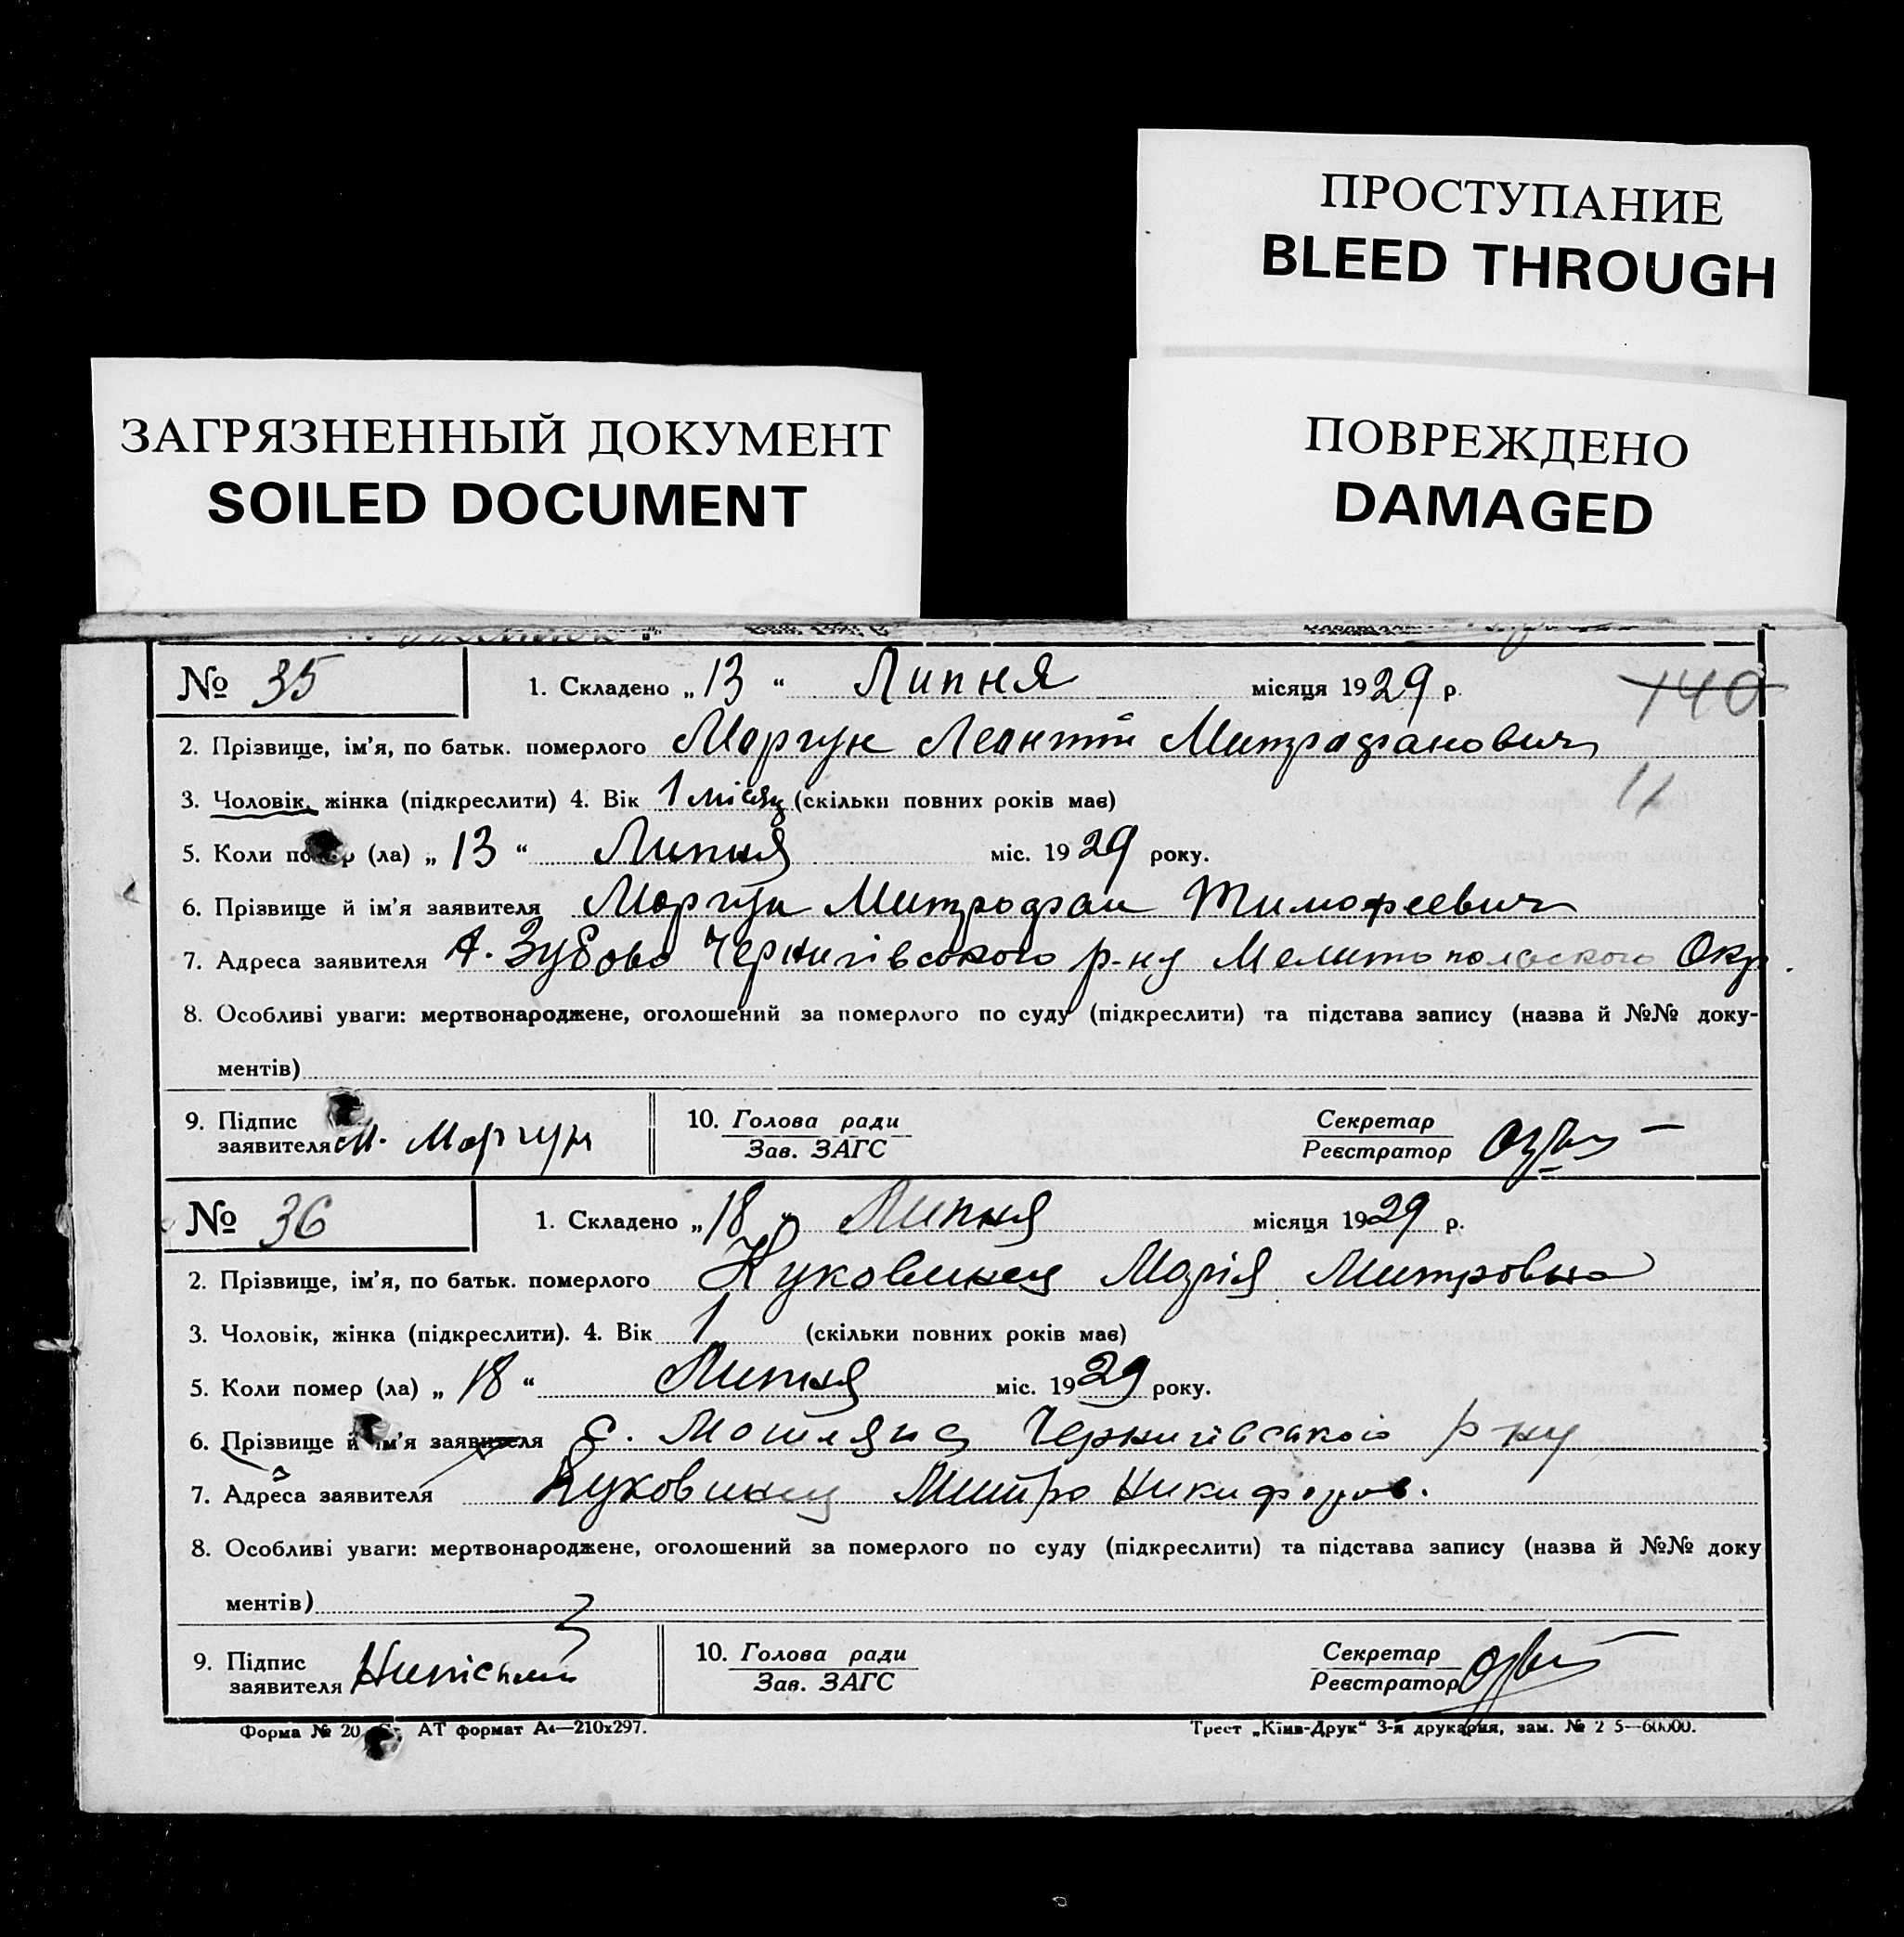 ПРОСТУПАНИЕ
BLEED THROUGH
ЗАГРЯЗНЕННЫЙ ДОКУМЕНТ
SOILED DOCUMENT
ПОВРЕЖДЕНО
DAMAGED
№ 35
1. Складено „13“ Липня місяця 1929 р.
140
2. Прізвище, ім’я, по батьк. померлого Моргун Леонтій Митрофанович
3. Чоловік, жінка (підкреслити) 4. Вік 1 місяц (скільки повних років має)
11
5. Коли помер (ла) „13“ Липня міс. 1929 року.
6. Прізвище й ім’я заявителя Моргун Митрофан Тимофеевич
7. Адреса заявителя А. Зубово Чернигівського р-ну Мелитопольского Окр.
8. Особливі уваги: мертвонароджене, оголошений за померлого по суду (підкреслити) та підстава запису (назва й №№ доку-
ментів)
9. Підпис заявителя М. Моргун
10. Голова ради
Зав. ЗАГС
Секретар
Реєстратор
№ 36
1. Складено „18“ Липня місяця 1929 р.
2. Прізвище, ім’я, по батьк. померлого Марія Митровна
3. Чоловік, жінка (підкреслити). 4. Вік 1 (скільки повних років має)
5. Коли помер (ла) „18“ Липня міс. 1929 року.
6. Прізвище й ім’я заявителя с. Чернигівського р-ну
7. Адреса заявителя Митро Никифоров.
8. Особливі уваги: мертвонароджене, оголошений за померлого по суду (підкреслити) та підстава запису (назва й №№ доку
ментів)
9. Підпис заявителя
10. Голова ради
Зав. ЗАГС
Секретар
Реєстратор
Форма № 20 АТ формат А4—210х297.
Трест „Київ-Друк“ 3-я друкарня, зам. № 2 5—60000.